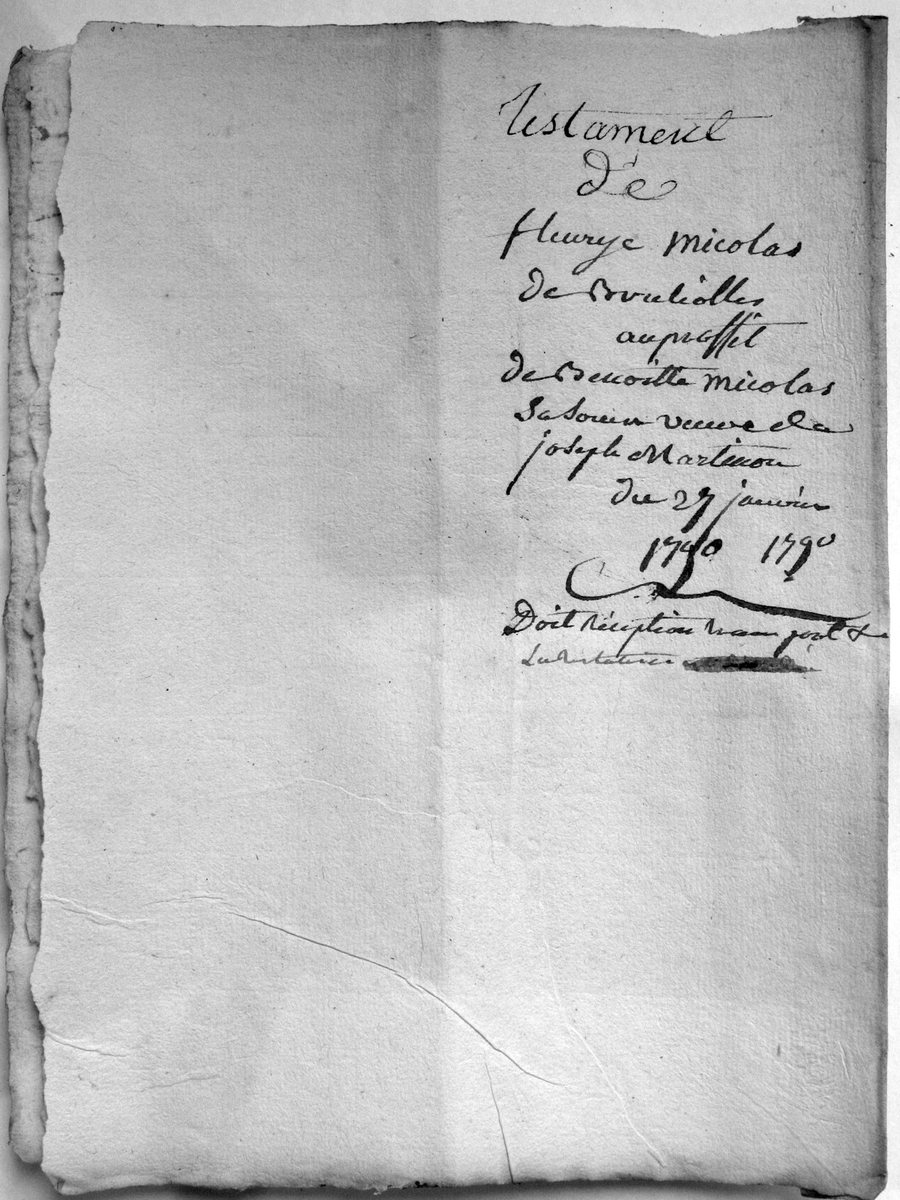 Testament
de
fleurye micolas
de
au proffit
de Benoitte micolas
Sa Soeur veuve de
joseph Martinon
du 27 janvier
1790 1790
Doit réception